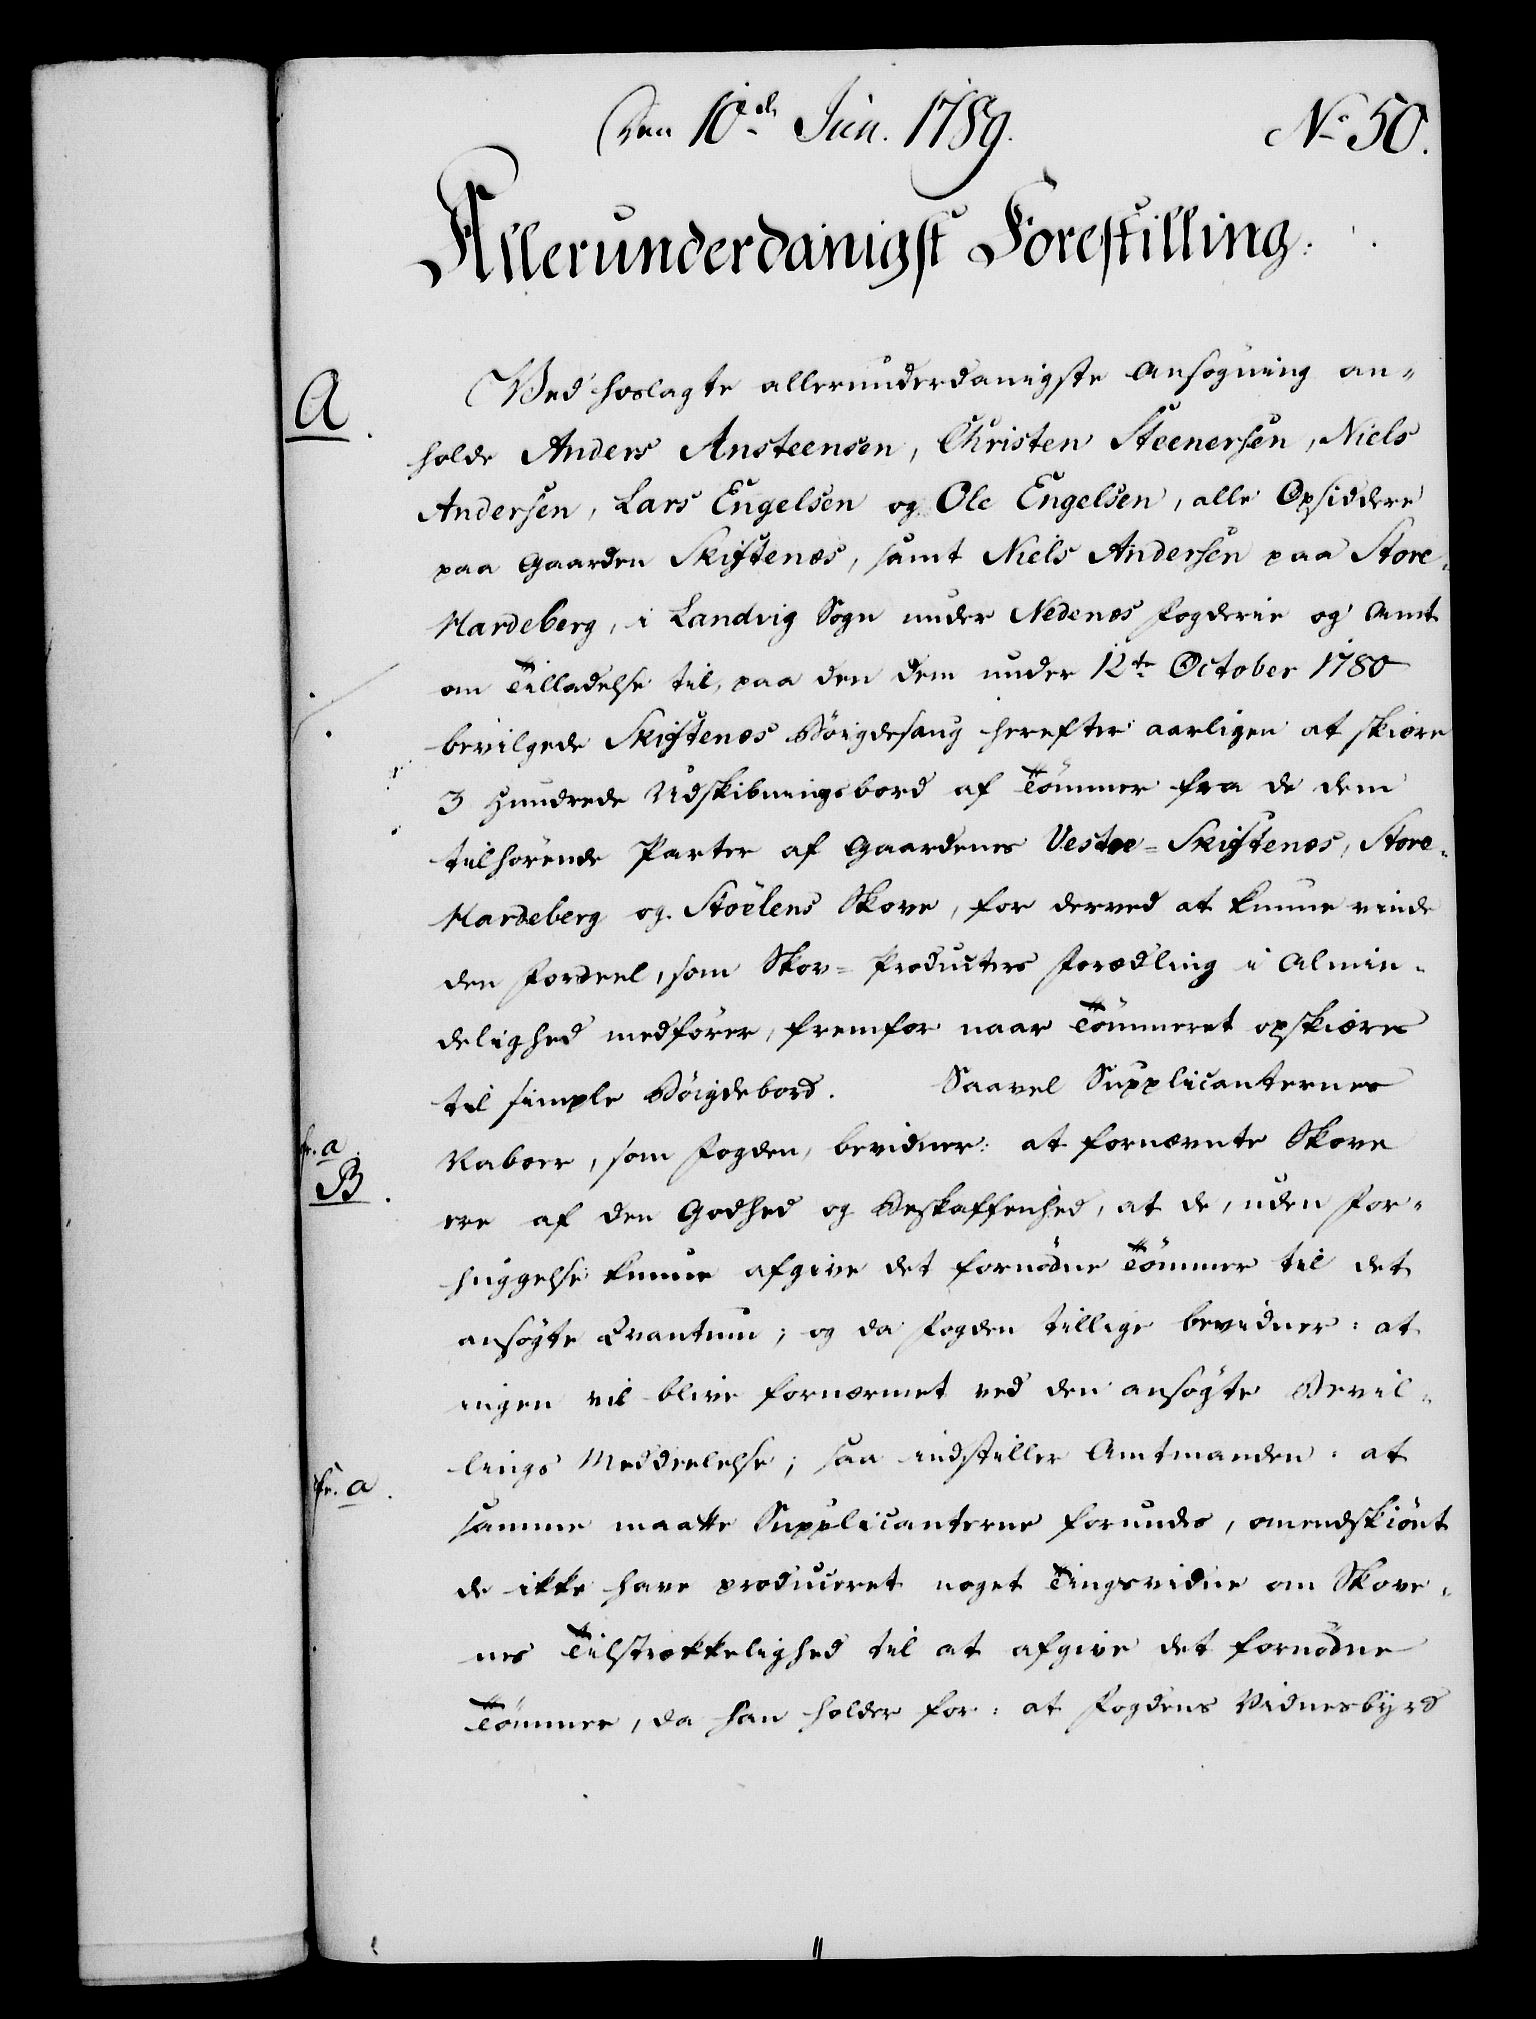 Den 10de Jun. 1789. No 50.
Allerunderdanigst Forestilling.
A. Ved hoslagte allerunderdanigste Ansøgning an-
holde Anders Ansteensen, Christen Steenersen, Niels
Andersen, Lars Engelsen og Ole Engelsen, alle Opsiddere
paa Gaarden Skiftenes, samt Niels Andersen paa Store-
Hardeberg, i Landvig Sogn under Nedenes Fogderie og Amt
om Tilladelse til, paa den dem under 12te October 1780
bevilgede Skiftenes Bøigdesaug herefter aarligen at skiære
3 Hundrede Udskibningsbord af Tømmer fra de dem
tilhørende Parter af Gaardenes Vestre-Skiftenes, Store-
Hardeberg og Støelens Skove, for derved at kunne vinde
den Fordeel, som Skov-Producters Forædling i Almin-
delighed medfører, fremfor naar Tømmeret opskiæres
til simple Bøigdebord. Saavel Supplicanternes
fr. a. Naboer, som Fogden, bevidner: at fornævnte Skove
B. ere af den Godhed og Beskaffenhed, at de, uden For-
huggelse kunne afgive det fornødne Tømmer til det
ansøgte Qvantum; og da Fogden tillige bevidner: at
ingen vil blive fornærmet ved den ansøgte Bevil-
lings Meddeelelse; saa indstiller Amtmanden: at
fr. a. samme maatte Supplicanterne forundes, omendskiønt
de ikke have produceret noget Tingsvidne om Skove-
nes Tilstrækkelighed til at afgive det fornødne
Tømmer, da han holder for: at Fogdens Vidnesbyrd